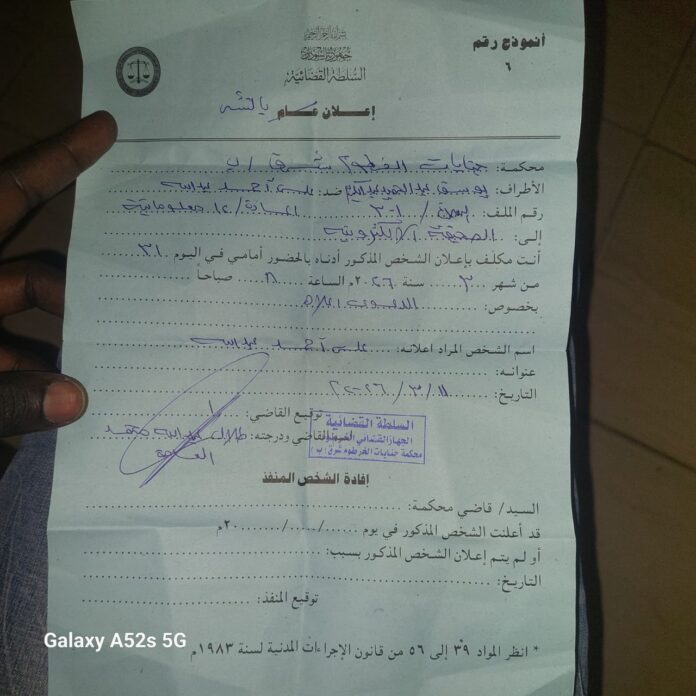 أنموذج رقم
٦
بسم الله الرحمن الرحيم
جمهورية السودان
السلطة القضائية
إعلان عام بالنشر
محكمة: جنايات الخرطوم شرق / ب
الأطراف: يوسف عبد ضد: علي أحمد عبدالله
رقم الملف: / معلوماتية
إلى: الصحيفة الالكترونية
أنت مكلف بإعلان الشخص المذكور أدناه بالحضور أمامي في اليوم ٣١
من شهر ٣ سنة ٢٠٢٦م الساعة ٨ صباحاً
بخصوص: الدعوى اعلاه
اسم الشخص المراد اعلانه: علي أحمد عبدالله
عنوانه:
التاريخ: ١١ / ٣ / ٢٠٢٦
توقيع القاضي:
اسم القاضي ودرجته: طلال عبدالله محمد
العامة
السلطة القضائية
الجهاز القضائي الخرطوم
محكمة جنايات الخرطوم شرق (ب)
إفادة الشخص المنفذ
السيد/ قاضي محكمة:
قد أعلنت الشخص المذكور في يوم ...../...../.....٢٠م
أو لم يتم إعلان الشخص المذكور بسبب:
التاريخ:
توقيع المنفذ:
* انظر المواد ٣٩ إلى ٥٦ من قانون الإجراءات المدنية لسنة ١٩٨٣م
Galaxy A52s 5G